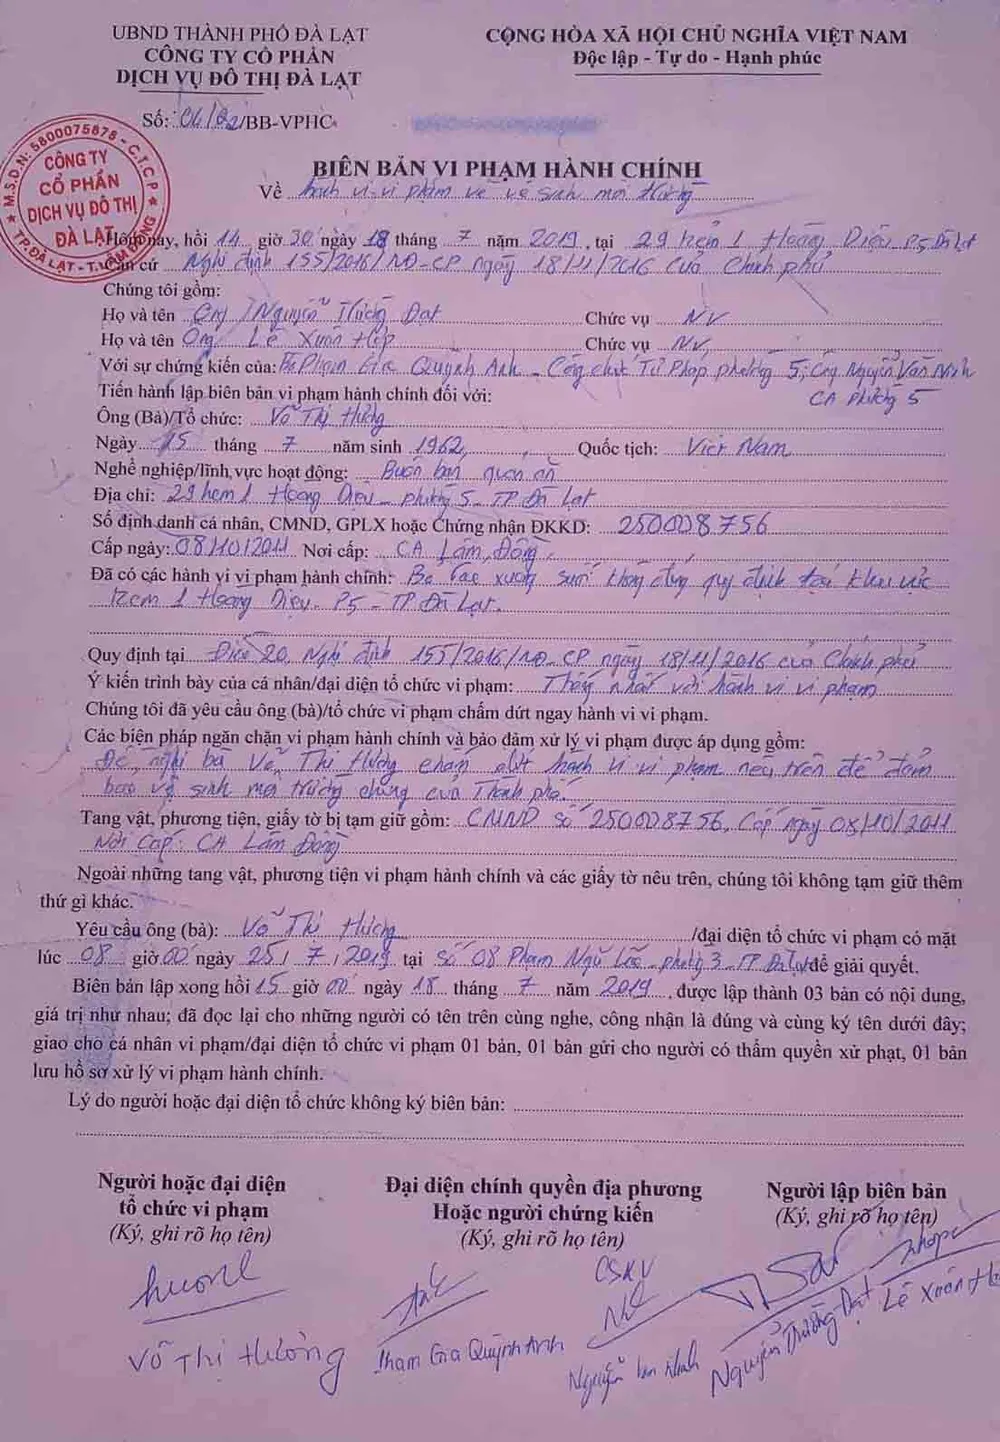 UBND THÀNH PHỐ ĐÀ LẠT
CÔNG TY CỔ PHẦN
DỊCH VỤ ĐÔ THỊ ĐÀ LẠT
CỘNG HÒA XÃ HỘI CHỦ NGHĨA VIỆT NAM
Độc lập - Tự do - Hạnh phúc
Số: /BB-VPHC
M.S.D.N: 5800075878 - C.T.C.P
CÔNG TY
CỔ PHẦN
DỊCH VỤ ĐÔ THỊ
ĐÀ LẠT
TP.ĐÀ LẠT - T.LÂM ĐỒNG
BIÊN BẢN VI PHẠM HÀNH CHÍNH
Về hành vi vi phạm về vệ sinh môi trường
Hôm nay, hồi 14 giờ 30 ngày 18 tháng 7 năm 2019, tại 29 hẻm 1 Hoàng Diệu P5 Đà Lạt
Căn cứ Nghị định 155/2016/NĐ-CP ngày 18/11/2016 của Chính phủ
Chúng tôi gồm:
Họ và tên Ông Nguyễn Trường Đạt Chức vụ NV
Họ và tên Ông Lê Xuân Hợp Chức vụ NV
Với sự chứng kiến của: Bà Phạm Gia Quỳnh Anh - Công chức Tư Pháp phường 5; Ông Nguyễn Văn Ninh
CA phường 5
Tiến hành lập biên bản vi phạm hành chính đối với:
Ông (Bà)/Tổ chức: Võ Thị Hường
Ngày 15 tháng 7 năm sinh 1962 Quốc tịch: Việt Nam
Nghề nghiệp/lĩnh vực hoạt động: Buôn bán quán ăn
Địa chỉ: 29 hẻm 1 Hoàng Diệu - phường 5 - TP Đà Lạt
Số định danh cá nhân, CMND, GPLX hoặc Chứng nhận ĐKKD: 250008756
Cấp ngày: 08/10/2011 Nơi cấp: CA Lâm Đồng
Đã có các hành vi vi phạm hành chính: Bỏ rác xuống suối không đúng quy định tại khu vực
hẻm 1 Hoàng Diệu - P5 - TP Đà Lạt.
Quy định tại Điều 20, Nghị định 155/2016/NĐ-CP ngày 18/11/2016 của Chính phủ
Ý kiến trình bày của cá nhân/đại diện tổ chức vi phạm: Thống nhất với hành vi vi phạm
Chúng tôi đã yêu cầu ông (bà)/tổ chức vi phạm chấm dứt ngay hành vi vi phạm.
Các biện pháp ngăn chặn vi phạm hành chính và bảo đảm xử lý vi phạm được áp dụng gồm:
Đề nghị bà Võ Thị Hường chấm dứt hành vi vi phạm nêu trên để đảm
bảo vệ sinh môi trường chung của Thành phố.
Tang vật, phương tiện, giấy tờ bị tạm giữ gồm: CMND số 250008756, Cấp ngày 08/10/2011
Nơi Cấp: CA Lâm Đồng
Ngoài những tang vật, phương tiện vi phạm hành chính và các giấy tờ nêu trên, chúng tôi không tạm giữ thêm
thứ gì khác.
Yêu cầu ông (bà): Võ Thị Hường /đại diện tổ chức vi phạm có mặt
lúc 08 giờ 00 ngày 25 / 7 / 2019 tại số 08 Phạm Ngũ Lão - phường 3 - TP Đà Lạt để giải quyết.
Biên bản lập xong hồi 15 giờ 00 ngày 18 tháng 7 năm 2019, được lập thành 03 bản có nội dung,
giá trị như nhau; đã đọc lại cho những người có tên trên cùng nghe, công nhận là đúng và cùng ký tên dưới đây;
giao cho cá nhân vi phạm/đại diện tổ chức vi phạm 01 bản, 01 bản gửi cho người có thẩm quyền xử phạt, 01 bản
lưu hồ sơ xử lý vi phạm hành chính.
Lý do người hoặc đại diện tổ chức không ký biên bản:
Người hoặc đại diện
tổ chức vi phạm
(Ký, ghi rõ họ tên)
Đại diện chính quyền địa phương
Hoặc người chứng kiến
(Ký, ghi rõ họ tên)
Người lập biên bản
(Ký, ghi rõ họ tên)
CSKV
Võ Thị Hường
Phạm Gia Quỳnh Anh
Nguyễn Văn Ninh
Nguyễn Trường Đạt
Lê Xuân